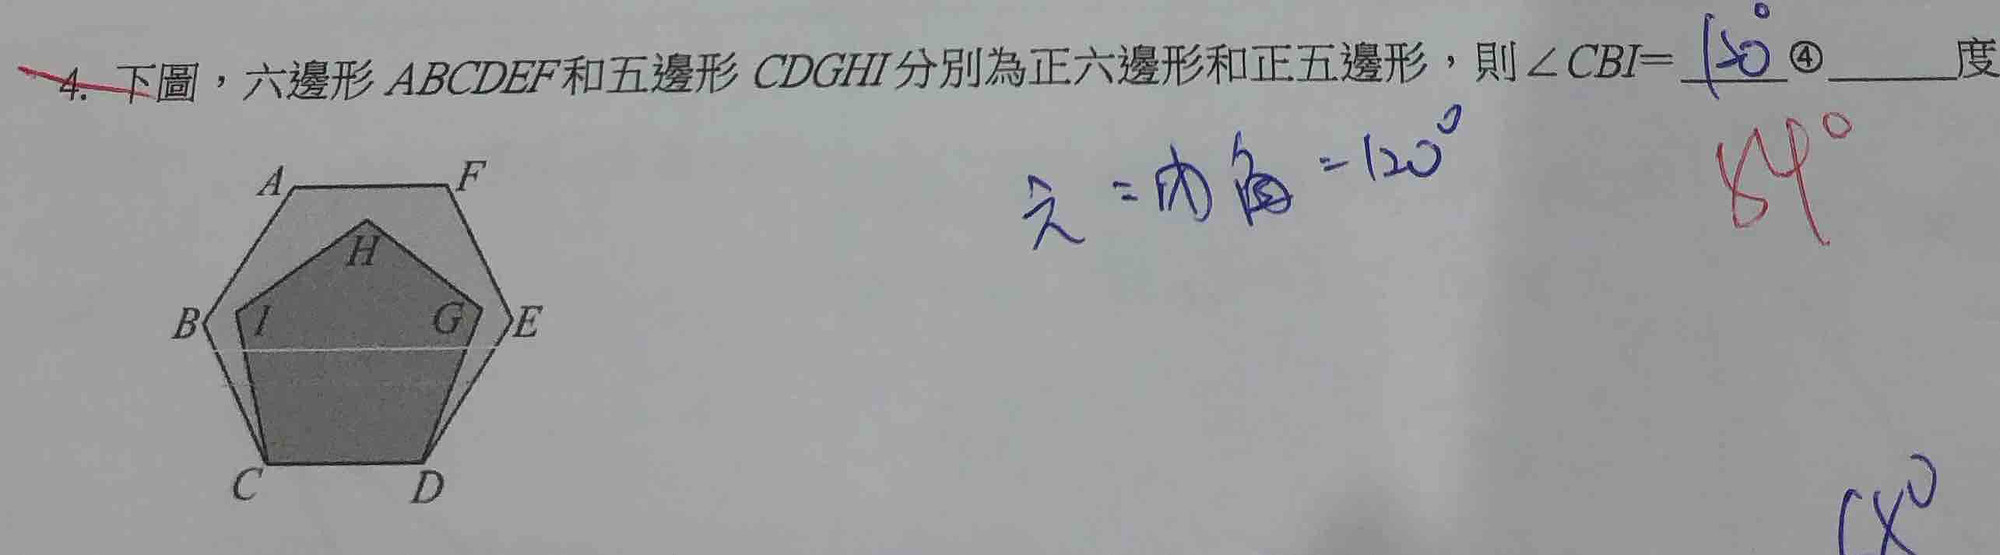 4. 下圖，六邊形 ABCDEF和五邊形 CDGHI分別為正六邊形和正五邊形，則∠CBI= 120° ④ 度
=內角=120°
84°
A F
H
B I G E
C D